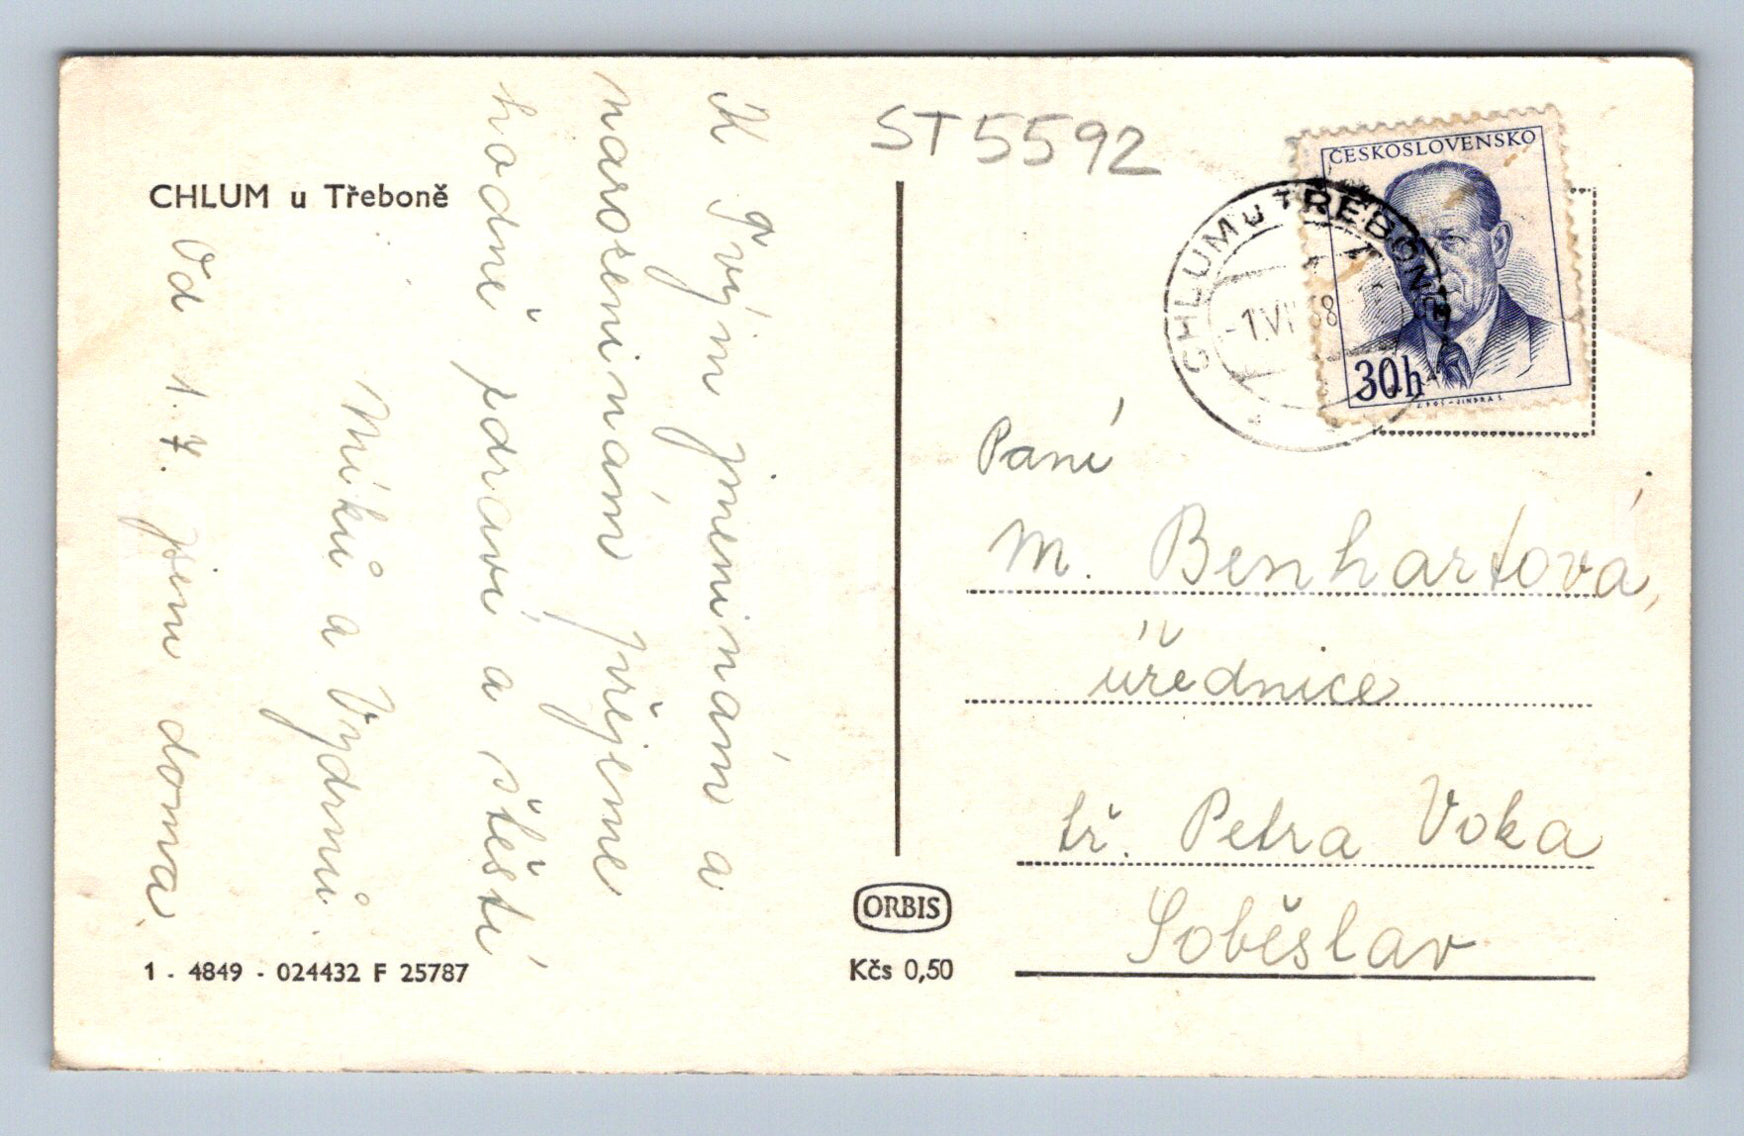 ST5592
CHLUM u Třeboně
K Tvým jmeninám a
narozeninám přejeme
hodně zdraví a štěstí
Míků a Vydrni.
Od 1.7. jsem doma.
1 - 4849 - 024432 F 25787
ORBIS
Kčs 0,50
ČESKOSLOVENSKO
30h
CHLUM u TŘEBONĚ
-1.VI 58
Paní
M. Benhartová,
úřednice
tř. Petra Voka
Soběslav